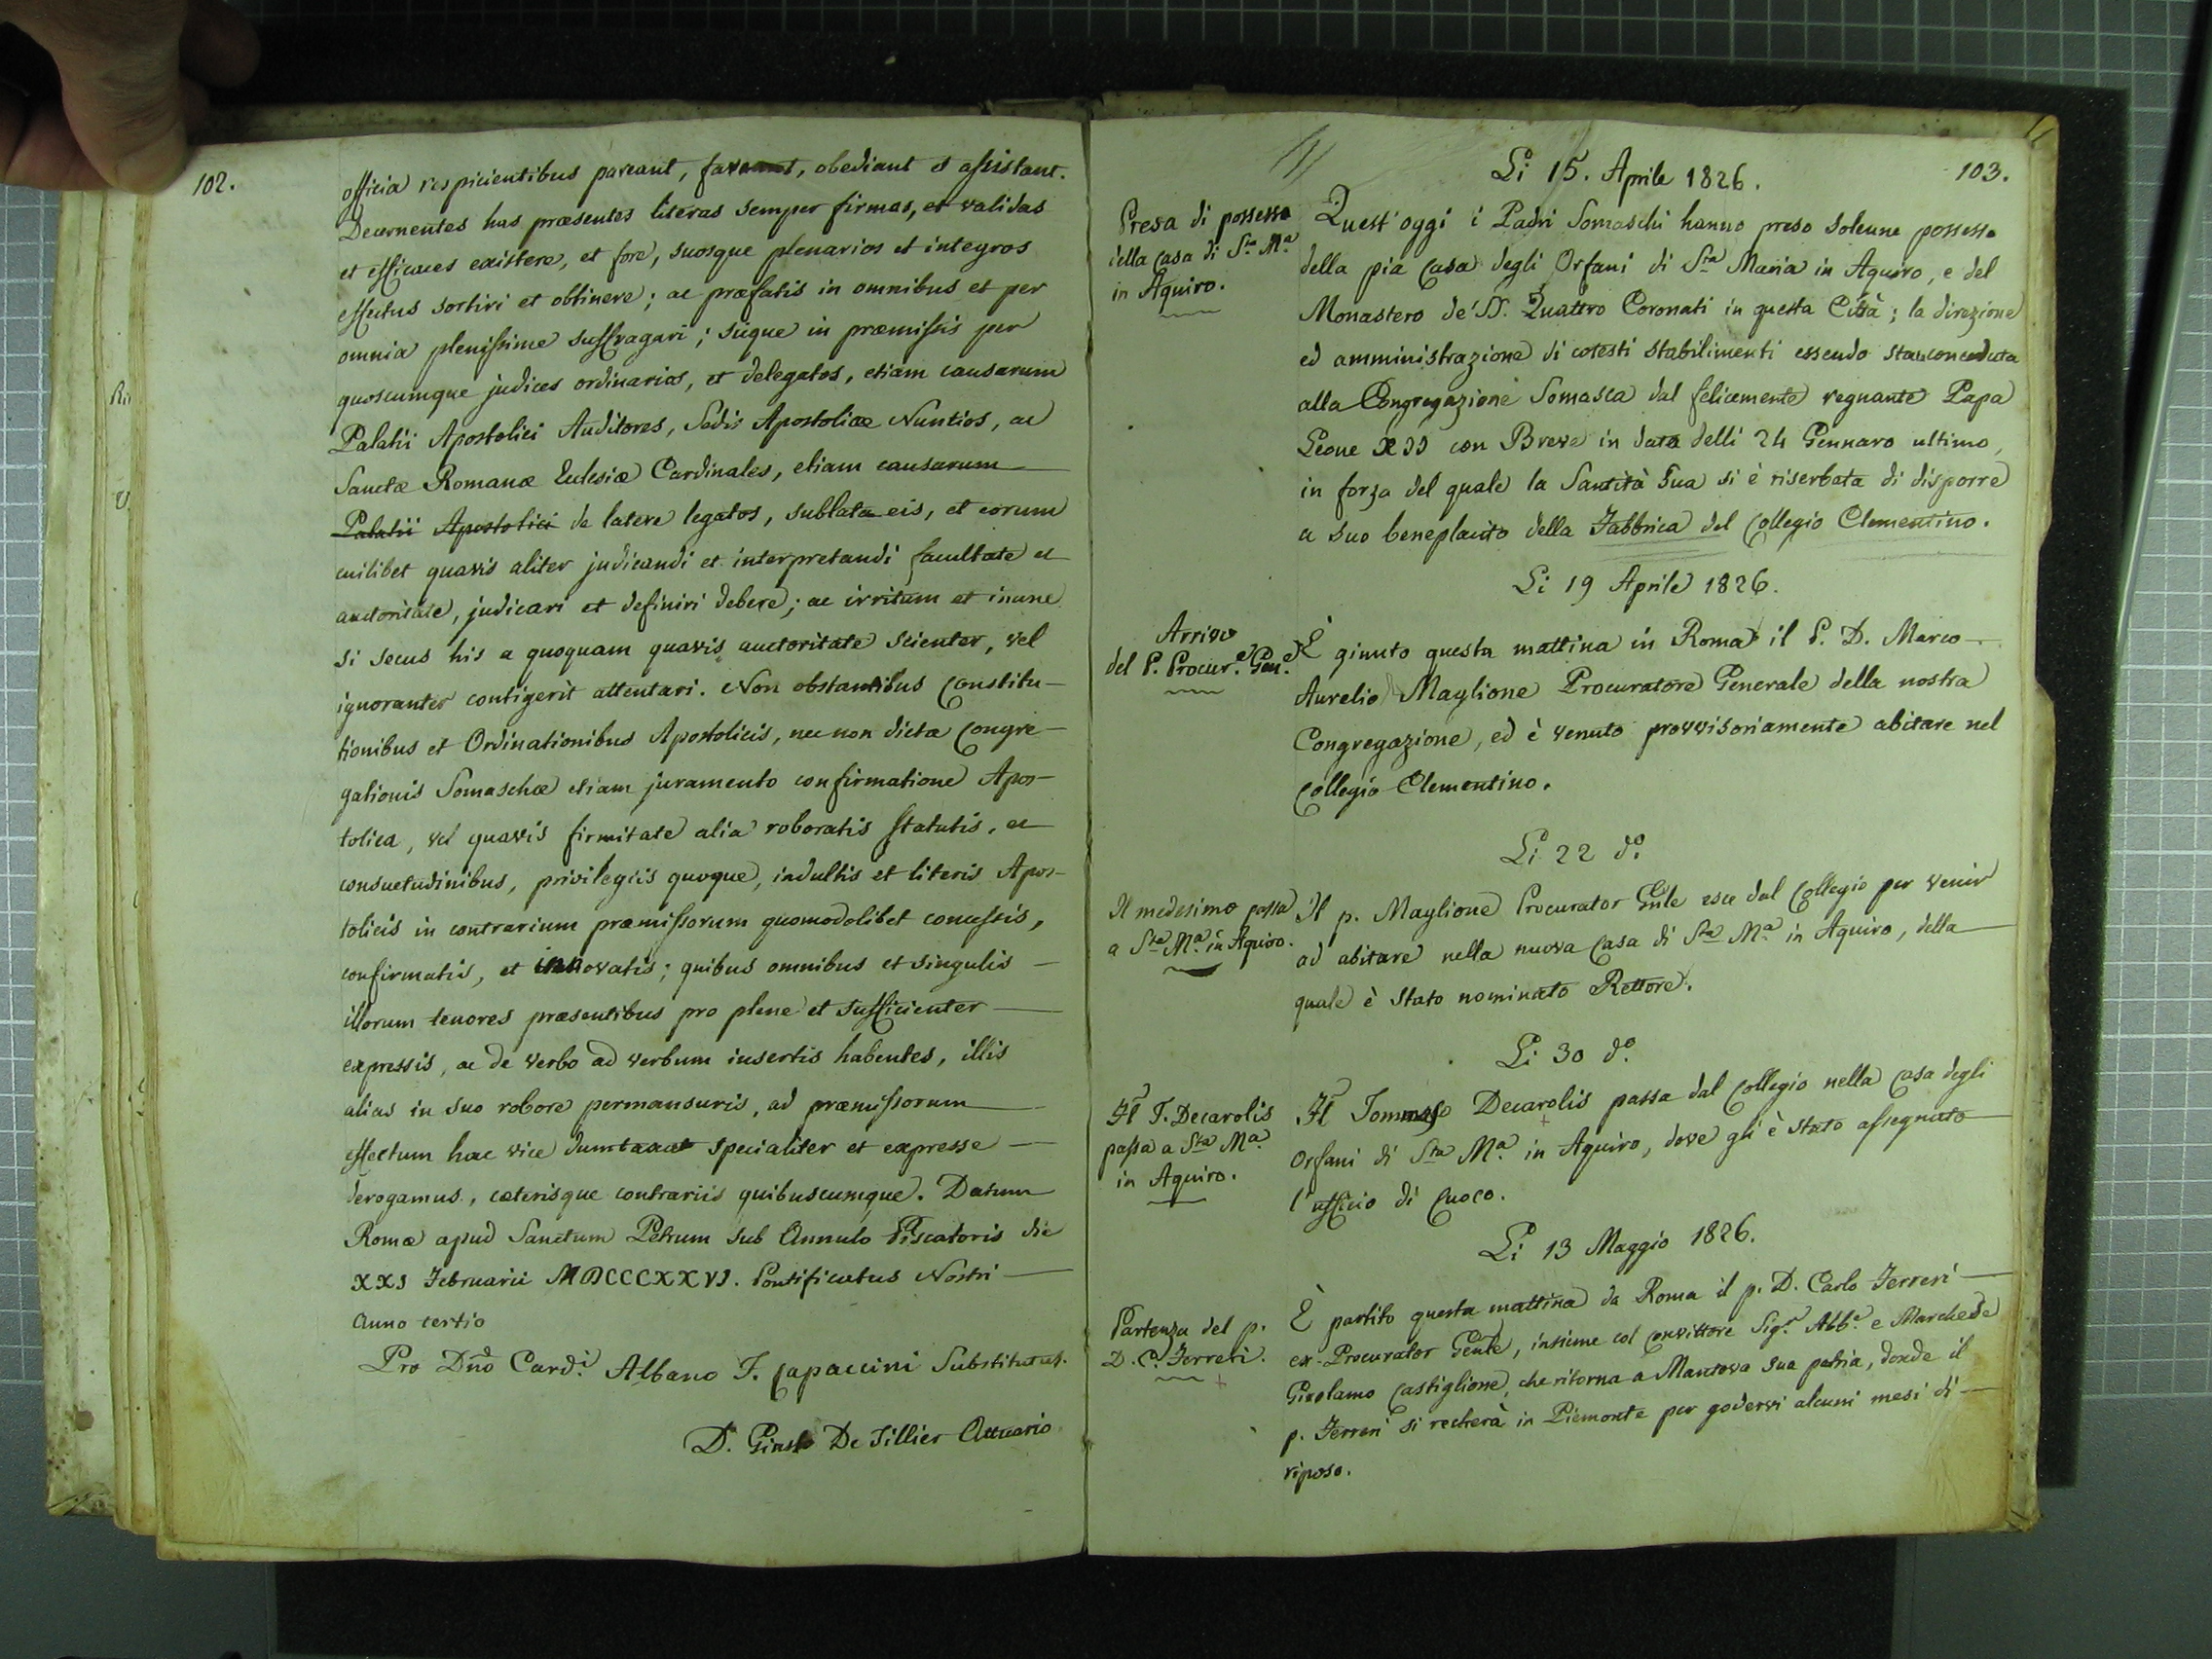 102.
officia respicientibus pareant, faveant, obediant et assistant.
Decernentes has præsentes literas semper firmas, et validas
et efficaces existere, et fore, suosque plenarios et integros
effectus sortiri et obtinere; ac præfatis in omnibus et per
omnia plenissime suffragari; sicque in præmissis per
quoscumque judices ordinarios, et delegatos, etiam causarum
Palatii Apostolici Auditores, Sedis Apostolicæ Nuntios, ac
Sanctæ Romanæ Eclesiæ Cardinales, etiam causarum
Palatii Apostolici de latere legatos, sublata eis, et eorum
cuilibet quavis aliter judicandi et interpretandi facultate et
auctoritate, judicari et definiri debere; ac irritum et inane
si secus his a quoquam quavis auctoritate scienter, vel
ignoranter contigerit attentari. Non obstantibus Constitu-
tionibus et Ordinationibus Apostolicis, nec non dictæ Congre-
gationis Somaschæ etiam juramento confirmatione Apos-
tolica, vel quavis firmitate alia roboratis statutis, et
consuetudinibus, privilegiis quoque, indultis et literis Apos-
tolicis in contrarium præmissorum quomodolibet concessis,
confirmatis, et innovatis; quibus omnibus et singulis
illorum tenores præsentibus pro plene et sufficienter
expressis, ac de verbo ad verbum insertis habentes, illis
alias in suo robore permansuris, ad præmissorum
effectum hac vice dumtaxat specialiter et expresse
derogamus, cæterisque contrariis quibuscumque. Datum
Romæ apud Sanctum Petrum sub Annulo Piscatoris die
XXI Februarii MDCCCXXVI. Pontificatus Nostri
Anno tertio
Pro Dno Cardi. Albano F. Capaccini Substitutus.
D. Giusto De Tillier Attuario
103.
Li 15. Aprile 1826.
Presa di possesso
della casa di Sta Ma
in Aquiro.
Quest'oggi i Padri Somaschi hanno preso solenne possesso
della pia casa degli Orfani di Sta Maria in Aquiro, e del
Monastero de' SS. Quattro Coronati in questa Città; la direzione
ed amministrazione di cotesti stabilimenti essendo stau conceduta
alla Congregazione Somasca dal felicemente regnante Papa
Leone XII con Breve in data delli 24 Gennaro ultimo,
in forza del quale la Santità Sua si è riserbata di disporre
a suo beneplacito della Fabbrica del Collegio Clementino.
Li 19 Aprile 1826.
Arrivo
del P. Procur.e Gen.e
È ginuto questa mattina in Roma il P. D. Marco
Aurelio Maglione Procuratore Generale della nostra
Congregazione, ed è venuto provvisoriamente abitare nel
Collegio Clementino.
Li 22 do.
Il medesimo passa
a Sta Ma. in Aquiro.
Il p. Maglione Procurator Gnle esce dal Collegio per venir
ad abitare nella nuova casa di Sta Ma in Aquiro, della
quale è stato nominato Rettore.
Li 30 do.
Fl T. Decarolis
passa a Sta Ma
in Aquiro.
Fl Tommaso Decarolis passa dal Collegio nella casa degli
Orfani di Sta Ma. in Aquiro, dove gli è stato assegnato
l'ufficio di Cuoco.
Li 13 Maggio 1826.
Partenza del p.
D. C. Ferreri.
È partito questa mattina da Roma il p. D. Carlo Ferreri
ex-Procurator Genle, insieme col convittore Sigr. Abbe. e Marchese
Girolamo Castiglione, che ritorna a Mantova sua patria, donde il
p. Ferreri si recherà in Piemonte per godervi alcuni mesi di
riposo.